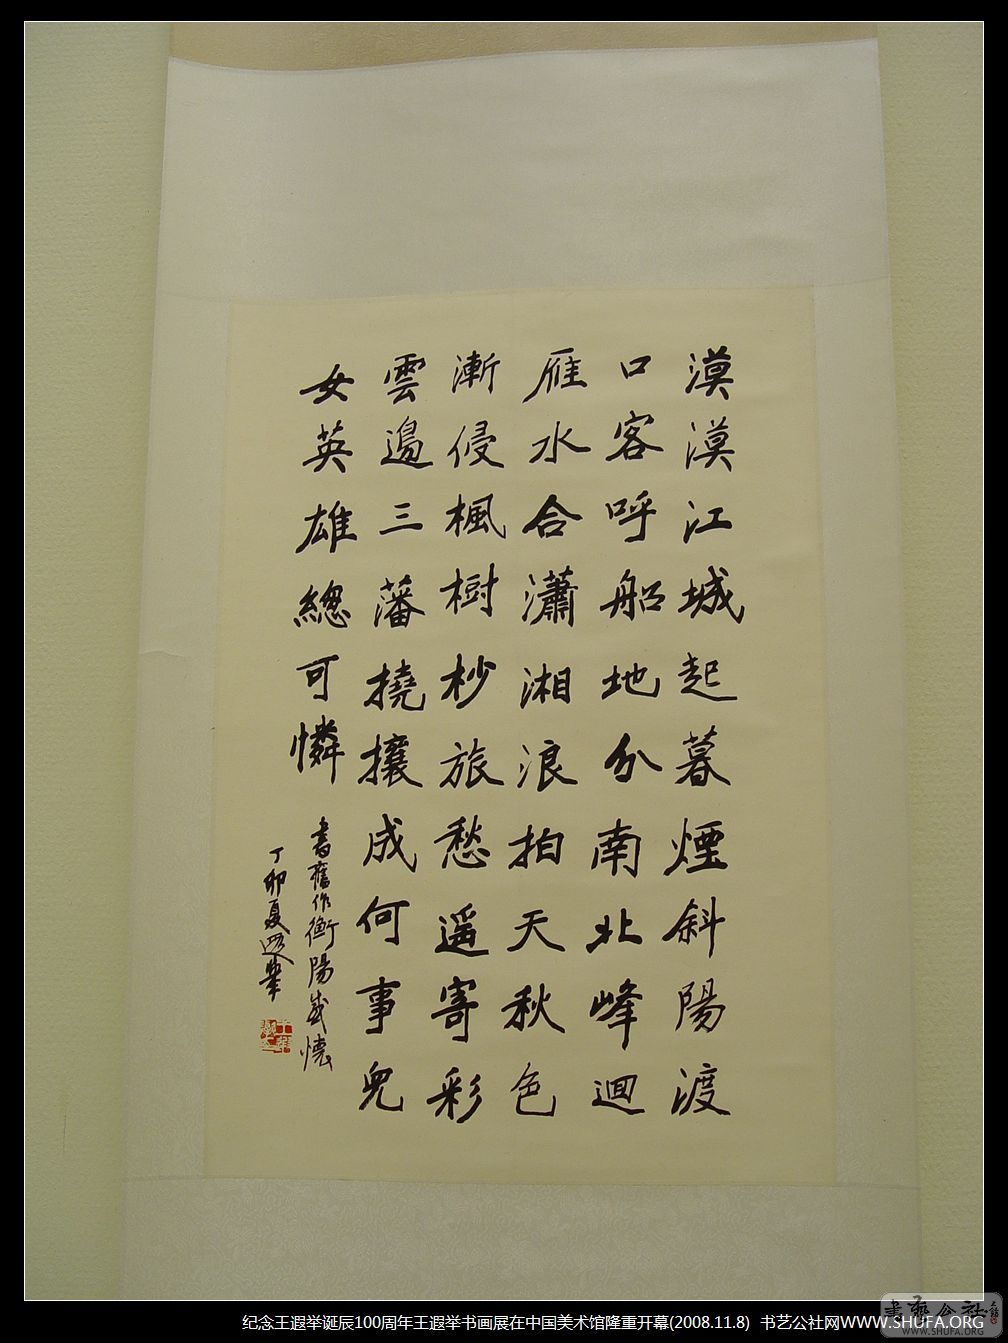 漠漠江城起暮煙斜陽渡
口客呼船地分南北峰迴
雁水合瀟湘浪拍天秋色
漸侵楓樹杪旅愁遥寄彩
雲邊三藩撓攘成何事兒
女英雄總可憐
書舊作衡陽感懷
丁卯夏遐舉
纪念王遐举诞辰100周年王遐举书画展在中国美术馆隆重开幕(2008.11.8) 书艺公社网WWW.SHUFA.ORG
書藝公社
WWW.SHUFA.ORG